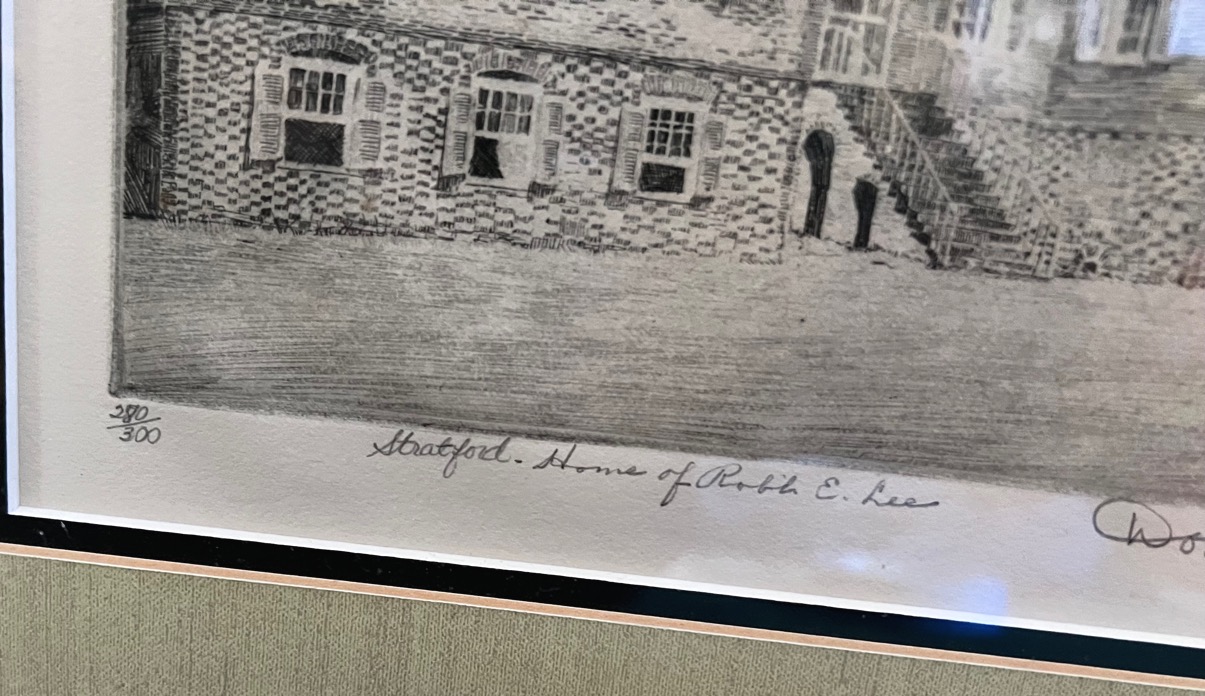 280/300
Stratford - Home of Robt. E. Lee
Do